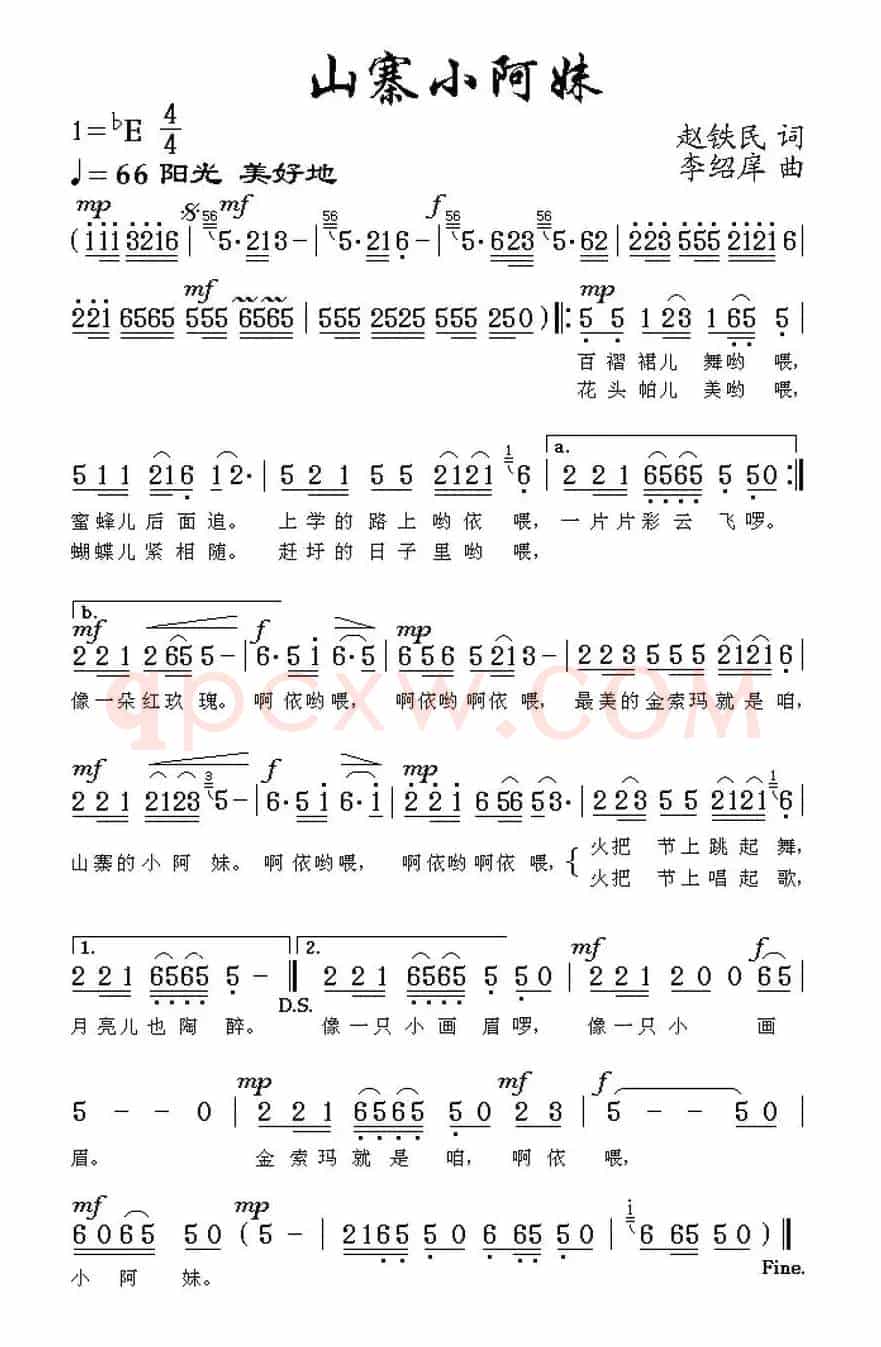 山寨小阿妹
1=♭E 4/4
赵铁民 词
♩=66 阳光 美好地
李绍庠 曲
mp 𝄋 mf f
(111 3216 | 56 5·213– | 56 5·216– | 56 5·623 56 5·62 | 223 555 21216 |
mf mp
221 6565 555 6565 | 555 2525 555 250 ) ‖: 5 5 1 23 1 65 5 |
百褶裙儿 舞哟 喂,
花头帕儿 美哟 喂,
1 a.
5 1 1 216 12· | 5 2 1 5 5 2121 6 | 2 2 1 6565 5 50 :‖
蜜蜂儿后面追。 上学的路上哟依 喂, 一片片彩云 飞啰。
蝴蝶儿紧相随。 赶圩的日子里哟 喂,
b.
mf f mp
2 2 1 2 65 5– | 6·5 1 6·5 | 6 56 5 213– | 2 2 3 5 5 5 2121 6 |
像一朵红玫 瑰。 啊依哟喂, 啊依哟啊依 喂, 最美的金索玛就是咱,
qpcxw.COM
mf 3 f mp 1
2 2 1 2123 5– | 6·5 1 6·1 | 2 2 1 6 56 53· | 2 2 3 5 5 2121 6 |
山寨的小阿 妹。 啊依哟喂, 啊依哟啊依 喂, { 火把 节上跳起舞,
火把 节上唱起歌,
1. 2. mf f
2 2 1 6565 5 – ‖ 2 2 1 6565 5 50 | 2 2 1 2 0 0 65 |
D.S.
月亮儿也陶 醉。 像一只小画 眉啰, 像一只小 画
mp mf f
5 – – 0 | 2 2 1 6565 50 2 3 | 5 – – 50 |
眉。 金索玛就是 咱, 啊依 喂,
mf mp i
6065 50 (5– | 2165 50 6 65 50 | 6 65 50 ) ‖
小阿 妹。
Fine.